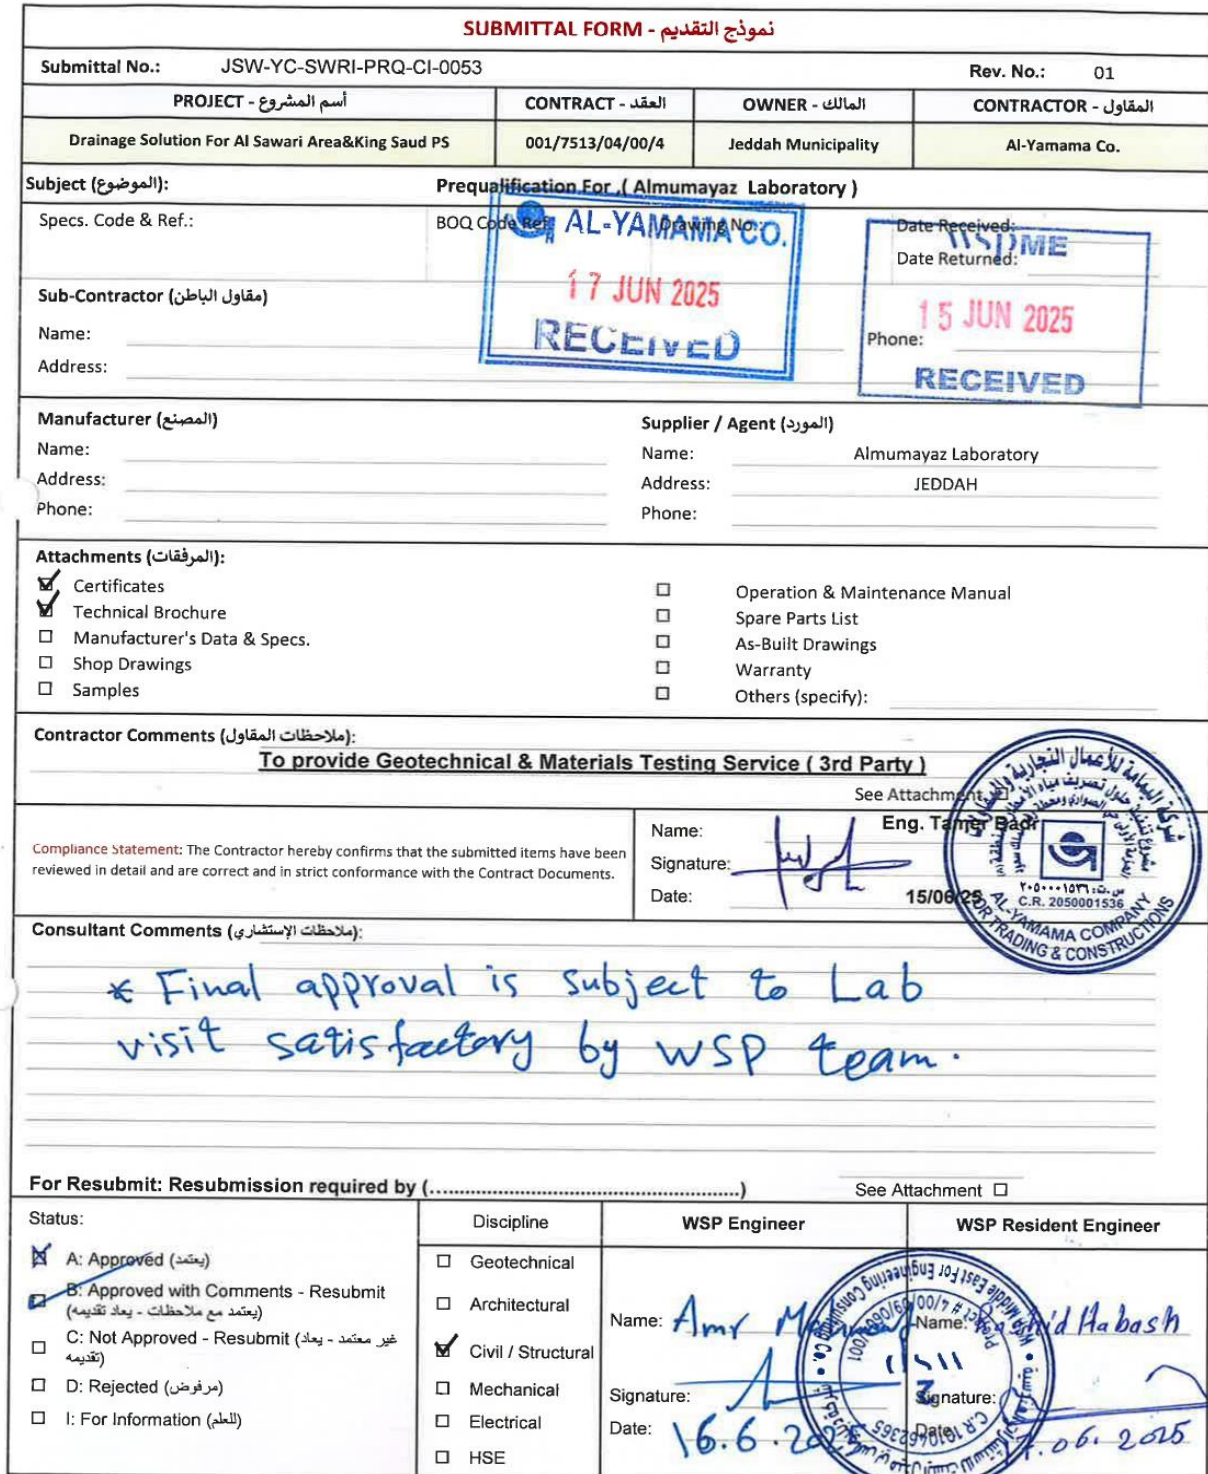 SUBMITTAL FORM - نموذج التقديم
Submittal No.: JSW-YC-SWRI-PRQ-CI-0053 Rev. No.: 01
PROJECT - أسم المشروع CONTRACT - العقد OWNER - المالك CONTRACTOR - المقاول
Drainage Solution For Al Sawari Area&King Saud PS 001/7513/04/00/4 Jeddah Municipality Al-Yamama Co.
Subject (الموضوع): Prequalification For ,( Almumayaz Laboratory )
Specs. Code & Ref.: BOQ Code Ref: Drawing No.: Date Received:
Date Returned:
AL-YAMAMA CO.
17 JUN 2025
RECEIVED
WSPME
15 JUN 2025
RECEIVED
Sub-Contractor (مقاول الباطن)
Name: Phone:
Address:
Manufacturer (المصنع) Supplier / Agent (المورد)
Name: Name: Almumayaz Laboratory
Address: Address: JEDDAH
Phone: Phone:
Attachments (المرفقات):
Certificates Operation & Maintenance Manual
Technical Brochure Spare Parts List
Manufacturer's Data & Specs. As-Built Drawings
Shop Drawings Warranty
Samples Others (specify):
Contractor Comments (ملاحظات المقاول):
To provide Geotechnical & Materials Testing Service ( 3rd Party )
See Attachment
Compliance Statement: The Contractor hereby confirms that the submitted items have been
reviewed in detail and are correct and in strict conformance with the Contract Documents.
Name: Eng. Tamer Badr
Signature:
Date: 15/06/25
شركة اليمامة للأعمال التجارية والمقاولات
س.ت: ٢٠٥٠٠٠١٥٣٦
C.R. 2050001536
AL-YAMAMA COMPANY
FOR TRADING & CONSTRUCTIONS
Consultant Comments (ملاحظات الإستشاري):
* Final approval is subject to Lab
visit satisfactory by WSP team.
For Resubmit: Resubmission required by (..........................................................) See Attachment
Status: Discipline WSP Engineer WSP Resident Engineer
A: Approved (يعتمد)
B: Approved with Comments - Resubmit
(يعتمد مع ملاحظات - يعاد تقديمه)
C: Not Approved - Resubmit (غير معتمد - يعاد
تقديمه)
D: Rejected (مرفوض)
I: For Information (للعلم)
Geotechnical
Architectural
Civil / Structural
Mechanical
Electrical
HSE
Name: Amr
Signature:
Date: 16.6.2025
Name: Rashid Habash
Signature:
Date: 17.06.2025
WSP Middle East For Engineering Consulting Co.